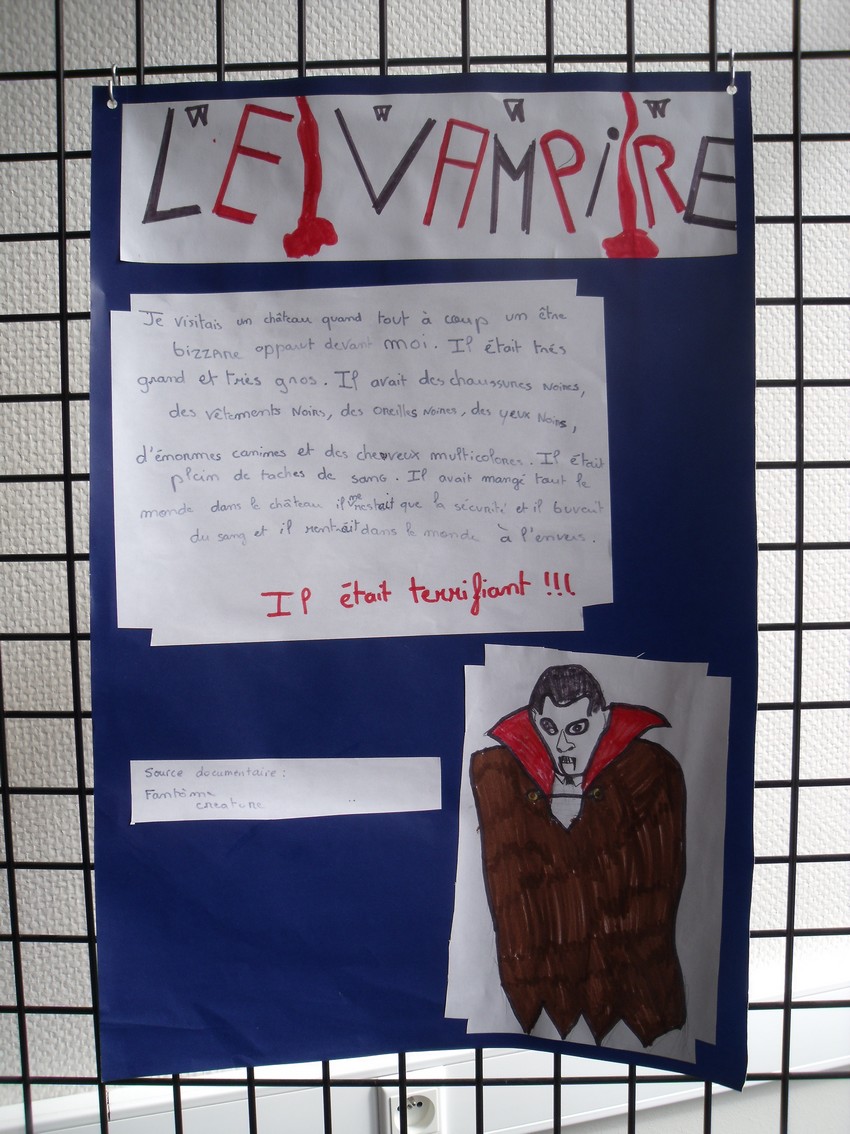 LE VAMPiRE
Je visitais un château quand tout à coup un être
bizzare apparut devant moi. Il était très
grand et très gros. Il avait des chaussures noires,
des vêtements noirs, des oreilles noires, des yeux noirs,
d'énormes canines et des cheveux multicolores. Il était
plein de taches de sang. Il avait mangé tout le
monde dans le château il ne restait que la sécurité et il buvait
du sang et il rentrait dans le monde à l'envers.
Il était terrifiant !!!
Source documentaire :
Fantôme
creature